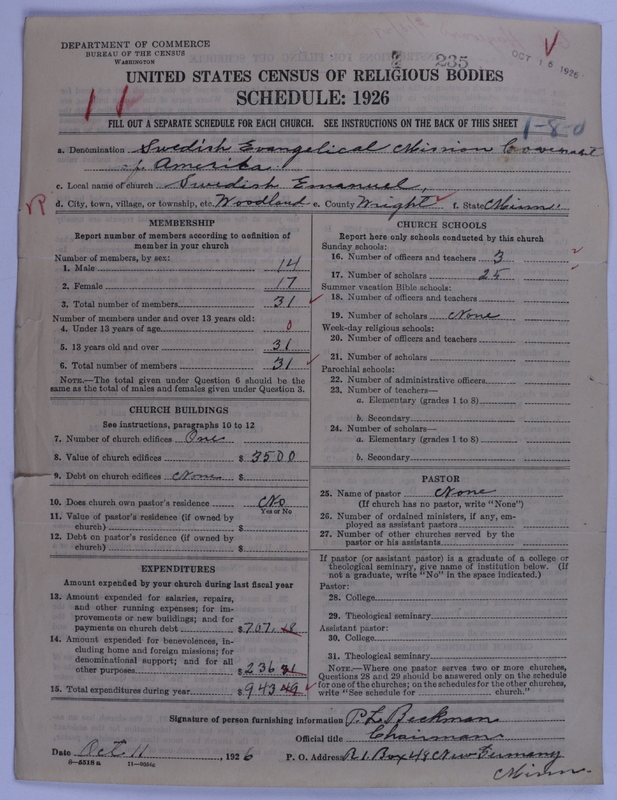 DEPARTMENT OF COMMERCE
BUREAU OF THE CENSUS
WASHINGTON
235
OCT 16 1926
UNITED STATES CENSUS OF RELIGIOUS BODIES
SCHEDULE: 1926
FILL OUT A SEPARATE SCHEDULE FOR EACH CHURCH. SEE INSTRUCTIONS ON THE BACK OF THIS SHEET
1-8-0
a. Denomination Swedish Evangelical Mission Covenant
of Amerika.
c. Local name of church Swedish Emanuel,
d. City, town, village, or township, etc. Woodland e. County Wright f. State Minn.
MEMBERSHIP
Report number of members according to definition of
member in your church
Number of members, by sex:
1. Male 14
2. Female 17
3. Total number of members 31
Number of members under and over 13 years old:
4. Under 13 years of age 0
5. 13 years old and over 31
6. Total number of members 31
NOTE.—The total given under Question 6 should be the
same as the total of males and females given under Question 3.
CHURCH BUILDINGS
See instructions, paragraphs 10 to 12
7. Number of church edifices One
8. Value of church edifices $ 3500
9. Debt on church edifices None $
10. Does church own pastor's residence No
Yes or No
11. Value of pastor's residence (if owned by
church) $
12. Debt on pastor's residence (if owned by
church) $
EXPENDITURES
Amount expended by your church during last fiscal year
13. Amount expended for salaries, repairs,
and other running expenses; for im-
provements or new buildings; and for
payments on church debt $707.18
14. Amount expended for benevolences, in-
cluding home and foreign missions; for
denominational support; and for all
other purposes $236 31
15. Total expenditures during year $943.49
CHURCH SCHOOLS
Report here only schools conducted by this church
Sunday schools:
16. Number of officers and teachers 3
17. Number of scholars 25
Summer vacation Bible schools:
18. Number of officers and teachers
19. Number of scholars None
Week-day religious schools:
20. Number of officers and teachers
21. Number of scholars
Parochial schools:
22. Number of administrative officers
23. Number of teachers—
a. Elementary (grades 1 to 8)
b. Secondary
24. Number of scholars—
a. Elementary (grades 1 to 8)
b. Secondary
PASTOR
25. Name of pastor None
(If church has no pastor, write "None")
26. Number of ordained ministers, if any, em-
ployed as assistant pastors
27. Number of other churches served by the
pastor or his assistants
If pastor (or assistant pastor) is a graduate of a college or
theological seminary, give name of institution below. (If
not a graduate, write "No" in the space indicated.)
Pastor:
28. College
29. Theological seminary
Assistant pastor:
30. College
31. Theological seminary
NOTE.—Where one pastor serves two or more churches,
Questions 28 and 29 should be answered only on the schedule
for one of the churches; on the schedules for the other churches,
write "See schedule for church."
Signature of person furnishing information P. L. Beckman
Official title Chairman
Date Oct. 11, 1926 P. O. Address R 1, Box 48 New Germany
Minn.
8-5518 a